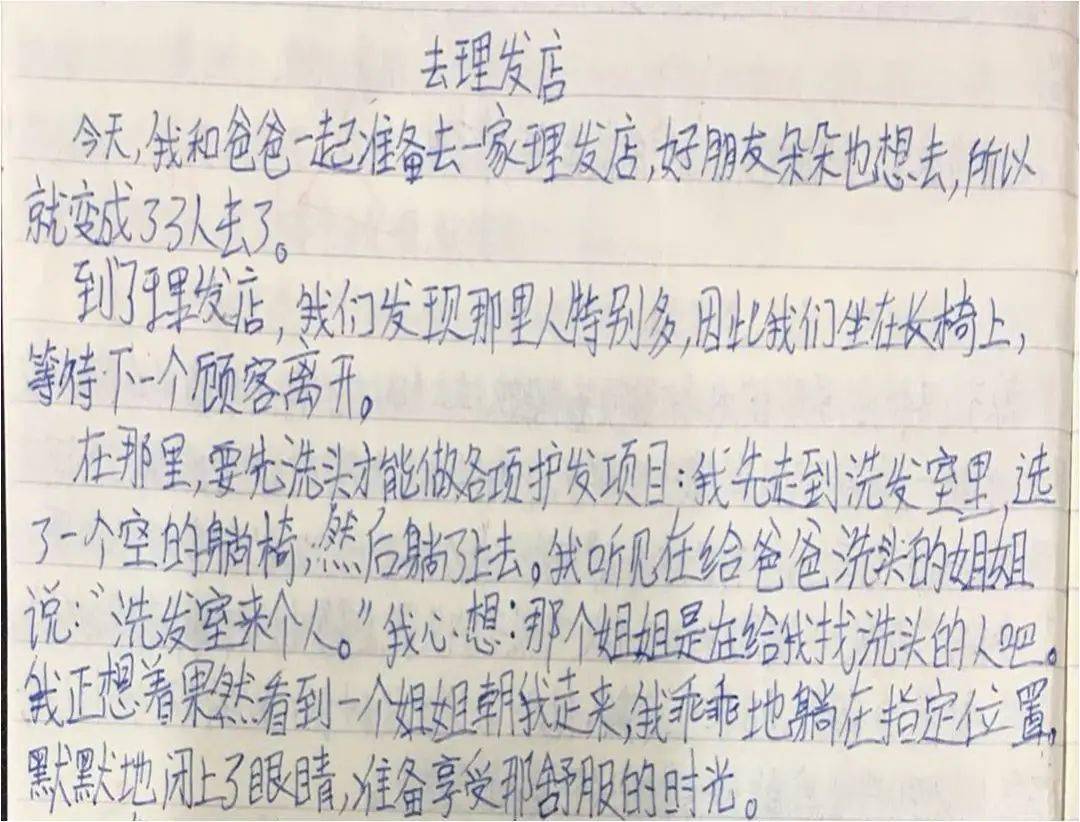 去理发店
今天,我和爸爸一起准备去一家理发店,好朋友朵朵也想去,所以
就变成了3人去了。
到了理发店,我们发现那里人特别多,因此我们坐在长椅上,
等待下一个顾客离开。
在那里,要先洗头才能做各项护发项目:我先走到洗发室里,选
了一个空的躺椅,然后躺了上去。我听见在给爸爸洗头的姐姐
说:“洗发室来个人。”我心想:那个姐姐是在给我找洗头的人吧。
我正想着果然看到一个姐姐朝我走来,我乖乖地躺在指定位置,
默默地闭上了眼睛,准备享受那舒服的时光。